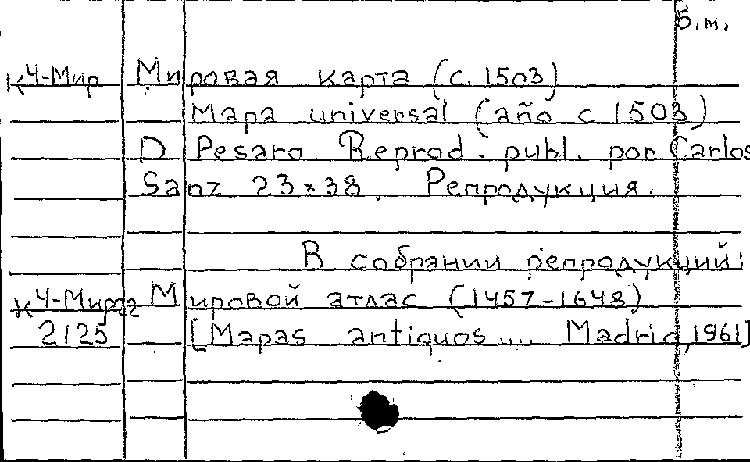 Б.м.
К4-Мир Мировая карта (с. 1503)
Mapa universal (año c 1503)
D Pesaro Reprod. publ. por Carlos
Sanz 23×38. Репродукция.
В собрании репродукций:
К4-Миров Мировой атлас (1457-1648)
2125 [Mapas antiquos.... Madrid, 1961]